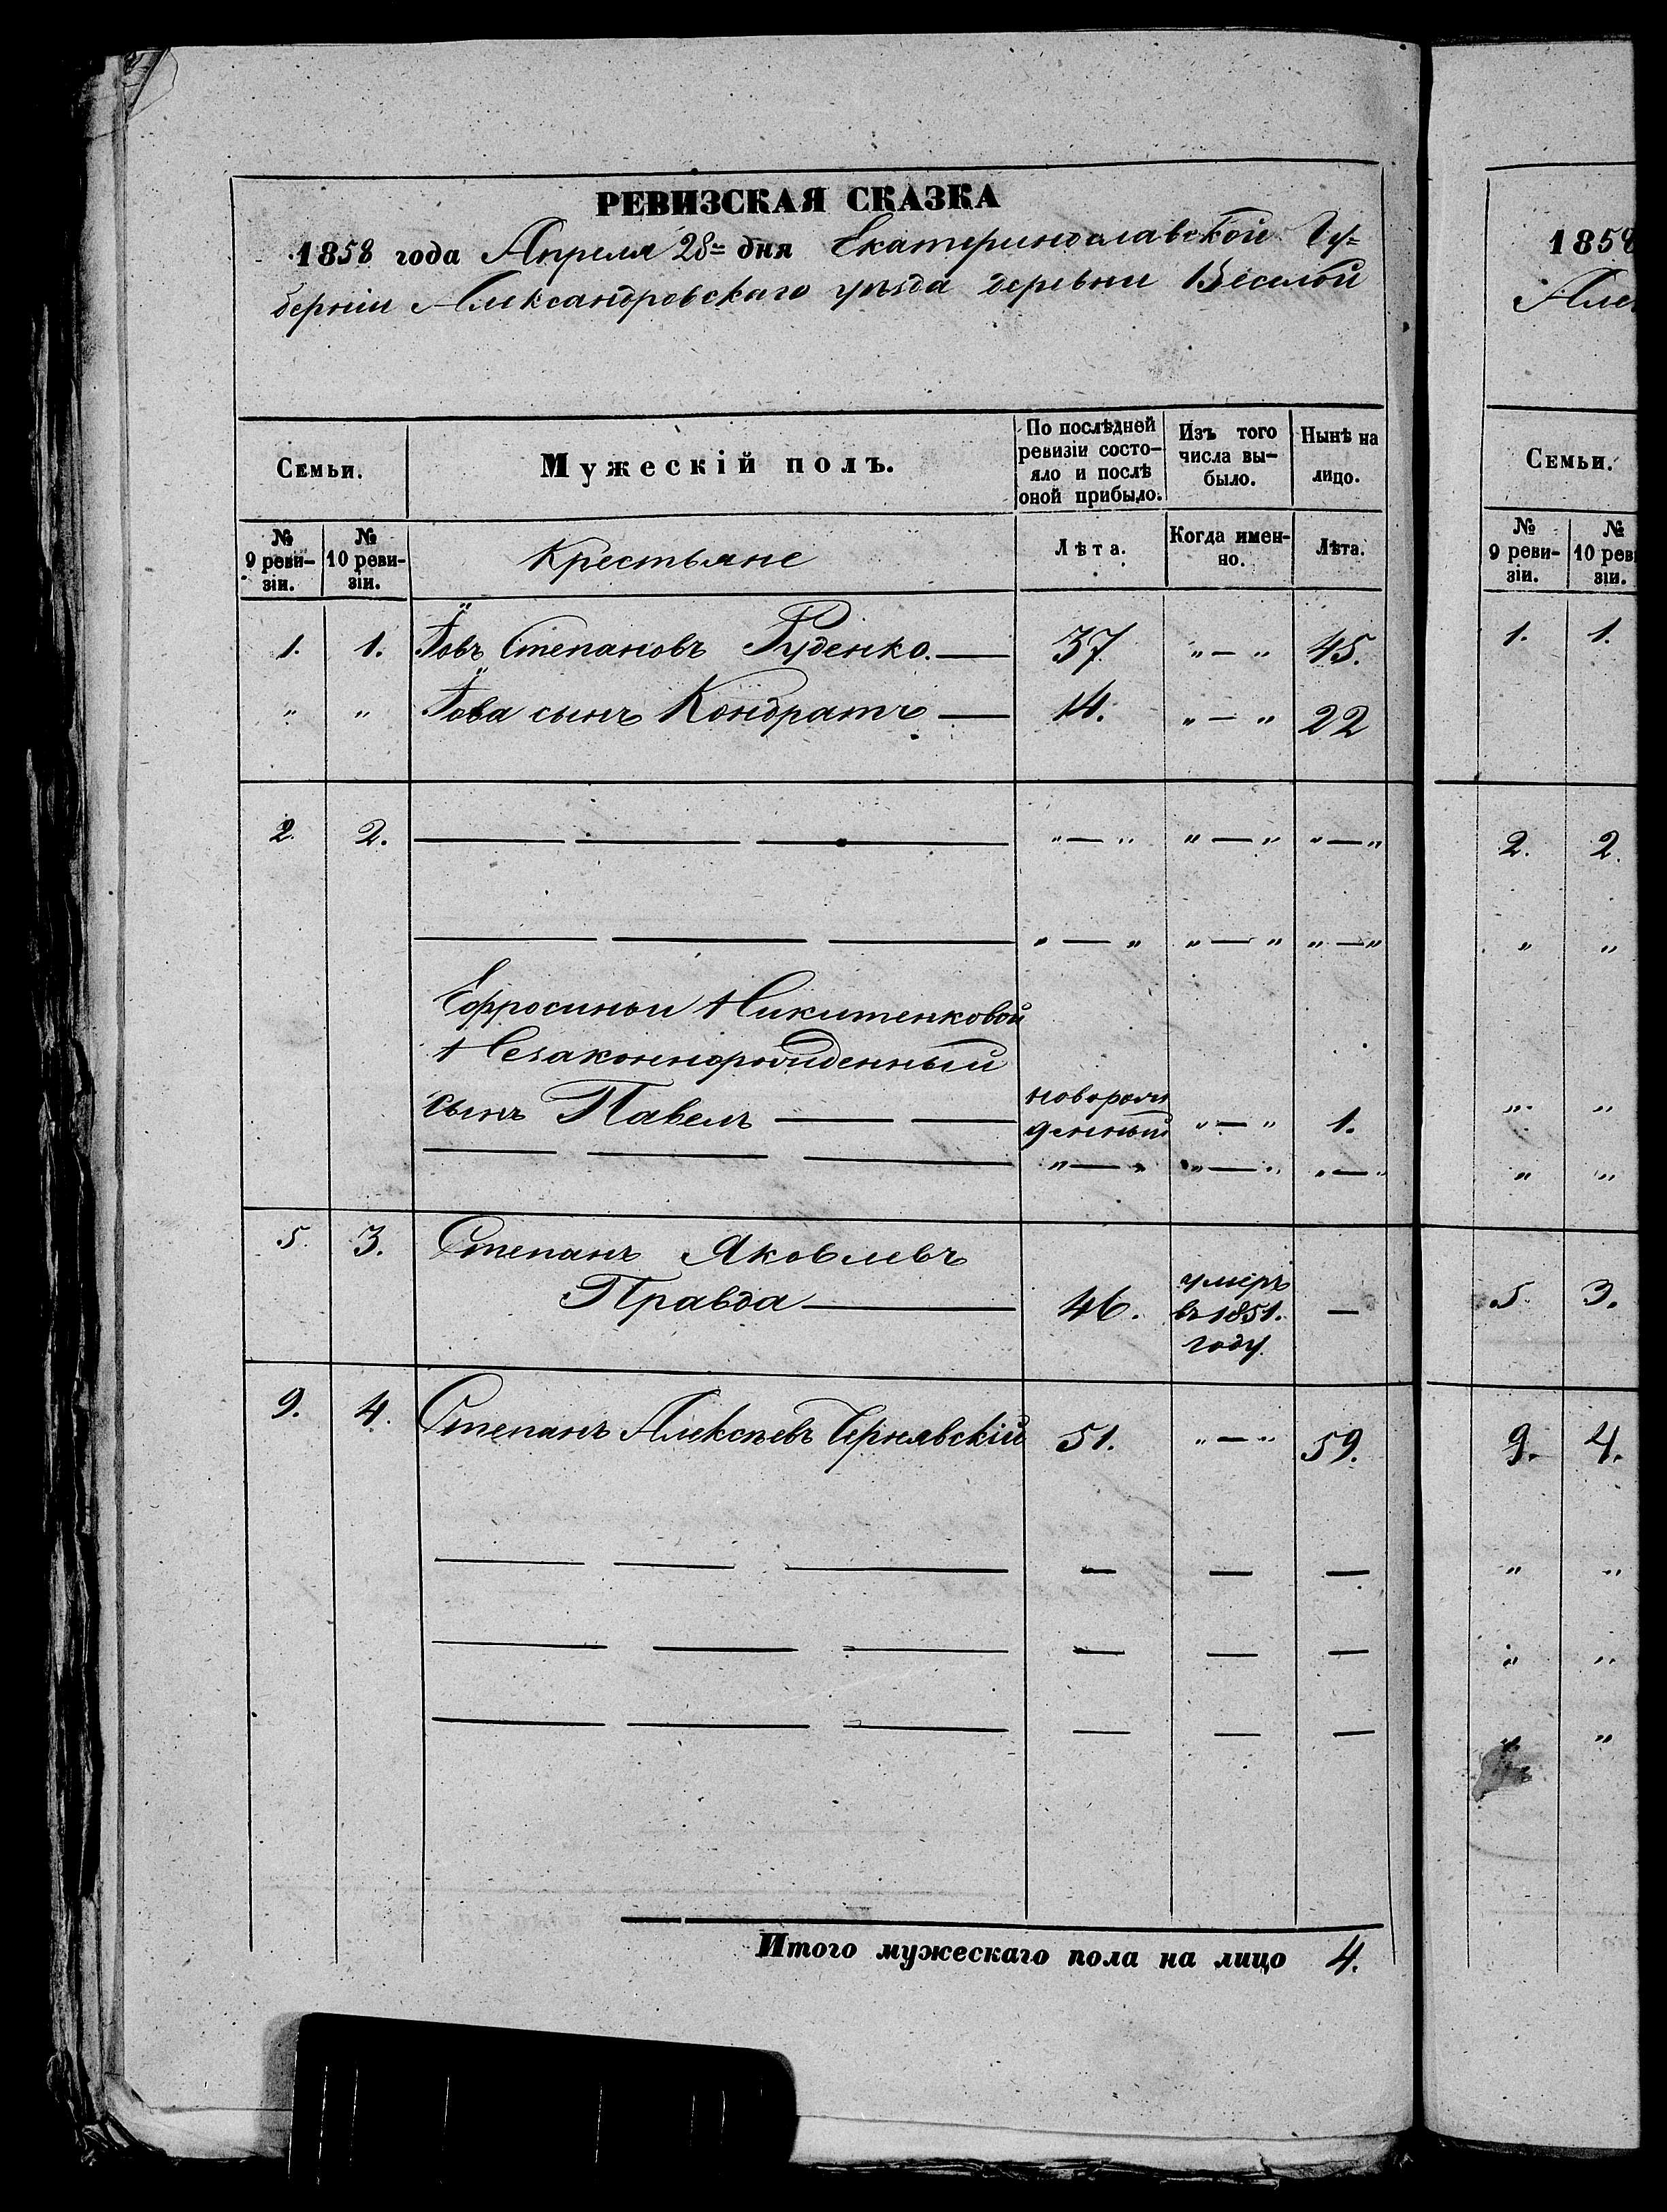 РЕВИЗСКАЯ СКАЗКА
1858 года Апреля 28го дня Екатеринославской Гу=
берніи Александровскаго уѣзда деревни Веселой
Семьи.
Мужескій полъ.
По послѣдней ревизіи состо-яло и послѣ оной прибыло.
Изъ того числа вы-было.
Нынѣ на лицо.
№ 9 реви-зіи.
№ 10 реви-зіи.
Крестьяне
Лѣта.
Когда имен-но.
Лѣта.
1. 1. Іовъ Степановъ Руденко. — 37. „ — „ 45.
„ „ Іова сынъ Кондратъ — 14. „ — „ 22
2. 2. — — — „ — „ „ — „ „ — „
— — — „ — „ „ — „ „ — „
Ефросиньи Никитенковой
Незаконнорожденный
сынъ Павелъ — — новорож
денный „ — „ 1.
— — — „ — „ „ — „ „ — „
5. 3. Степанъ Яковлевъ
Правда — 46. умеръ
въ 1851.
году. —
9. 4. Степанъ Алексѣевъ Чернявскій 51. „ — „ 59.
— — — — — —
— — — — — —
— — — — — —
Итого мужескаго пола на лицо 4.
1858
Алек
Семьи.
№ 9 реви-зіи.
№ 10 реви зіи.
1. 1.
2. 2.
„ „
„ „
„ „
5 3.
9. 4.
„ „
„ „
„ „